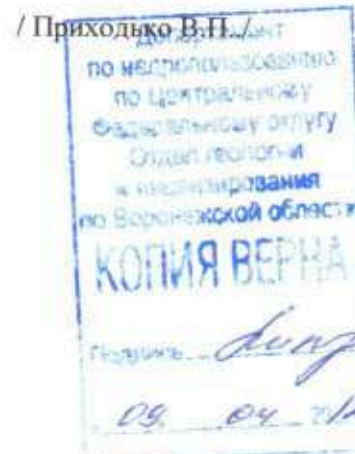 / Приходько В.П. /
Департамент
по недропользованию
по Центральному
Федеральному округу
Отдел геологии
и лицензирования
по Воронежской области
КОПИЯ ВЕРНА
Подпись
09. 04